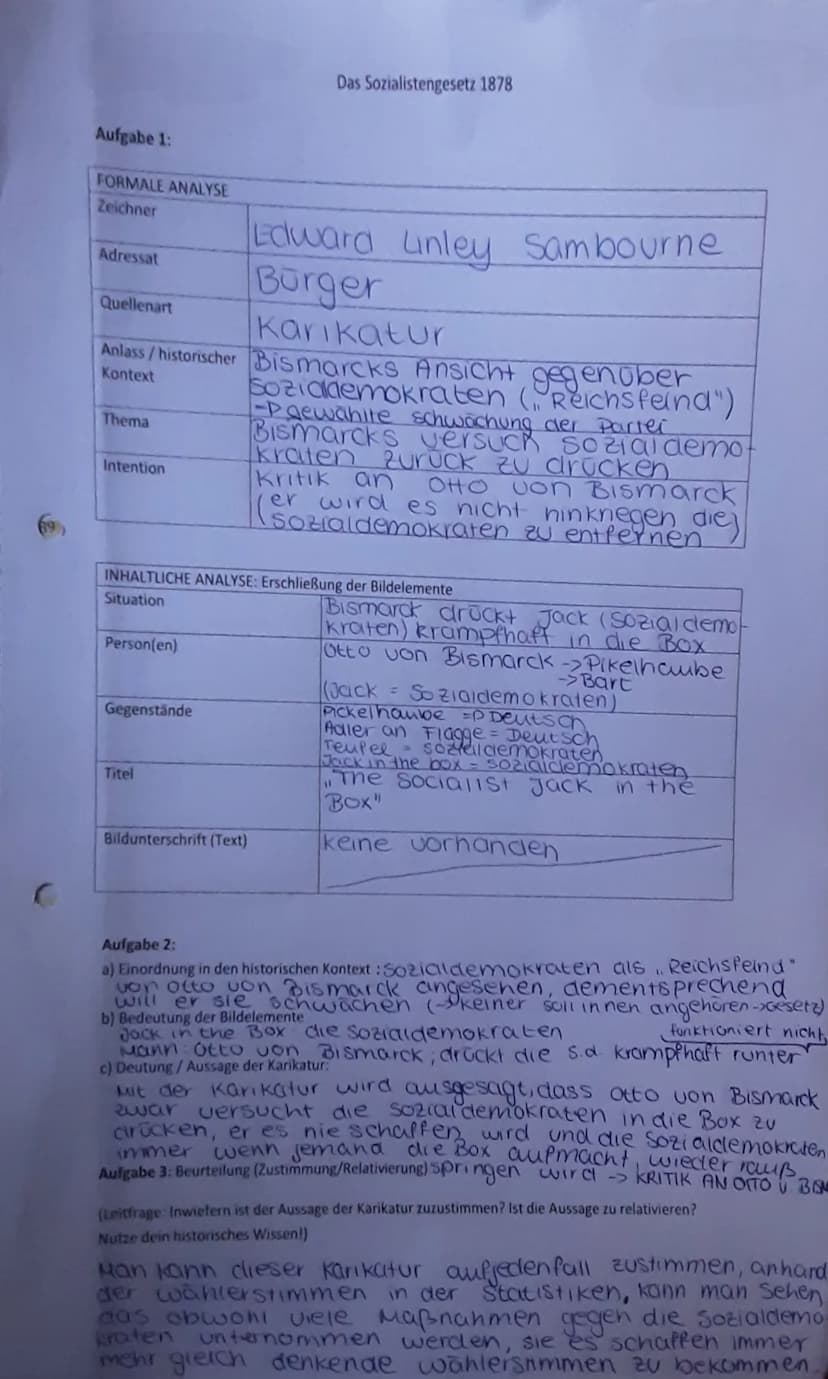 Das Sozialistengesetz 1878
Aufgabe 1:
FORMALE ANALYSE
Zeichner
Edward Linley Sambourne
Adressat
Bürger
Quellenart
Karikatur
Anlass / historischer Kontext
Bismarcks Ansicht gegenüber
Sozialdemokraten („Reichsfeind")
-> gewählte schwächung der Partei
Thema
Bismarcks versuch sozialdemo-
kraten zurück zu drücken
Intention
Kritik an Otto von Bismarck
(er wird es nicht hinkriegen die)
(sozialdemokraten zu entfernen
INHALTLICHE ANALYSE: Erschließung der Bildelemente
Situation
Bismarck drückt Jack (Sozialdemo-
kraten) krampfhaft in die Box
Person(en)
Otto von Bismarck -> Pikelhaube
-> Bart
(Jack = Sozialdemokraten)
Gegenstände
Pickelhaube => Deutsch
Adler an Flagge = Deutsch
Teufel = sozialdemokraten
Jack in the box = sozialdemokraten
Titel
„The Socialist Jack in the
Box"
Bildunterschrift (Text)
keine vorhanden
Aufgabe 2:
a) Einordnung in den historischen Kontext : Sozialdemokraten als „Reichsfeind"
von Otto von Bismarck angesehen, dementsprechend
will er sie schwächen (-> keiner soll innen angehören -> Gesetz)
b) Bedeutung der Bildelemente
funktioniert nicht
Jack in the Box: die Sozialdemokraten
Mann: Otto von Bismarck ; drückt die s.d. krampfhaft runter
c) Deutung / Aussage der Karikatur:
Mit der Karikatur wird ausgesagt, dass Otto von Bismarck
zwar versucht die sozialdemokraten in die Box zu
drücken, er es nie schaffen wird und die Sozialdemokraten
immer wenn jemand die Box aufmacht, wieder rauß
springen wird -> KRITIK AN OTTO V. BISM
Aufgabe 3: Beurteilung (Zustimmung/Relativierung)
(Leitfrage: Inwiefern ist der Aussage der Karikatur zuzustimmen? Ist die Aussage zu relativieren?
Nutze dein historisches Wissen!)
Man kann dieser Karikatur aufjedenfall zustimmen, anhand
der wählerstimmen in der Statistiken, kann man sehen,
das obwohl viele Maßnahmen gegen die Sozialdemo
kraten unternommen werden, sie es schaffen immer
mehr gleich denkende wählersimmen zu bekommen.